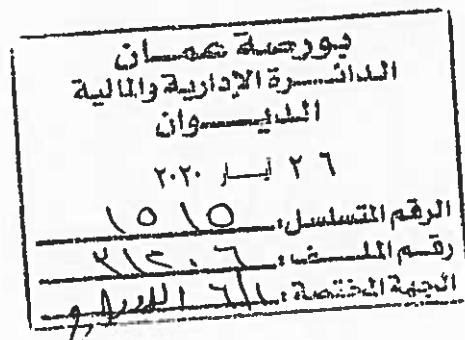 بورصة عمان
الدائرة الإدارية والمالية
الديوان
٢٦ أيار ٢٠٢٠
الرقم المتسلسل: ١٥١٥
رقم الملف:
الجهة المختصة: